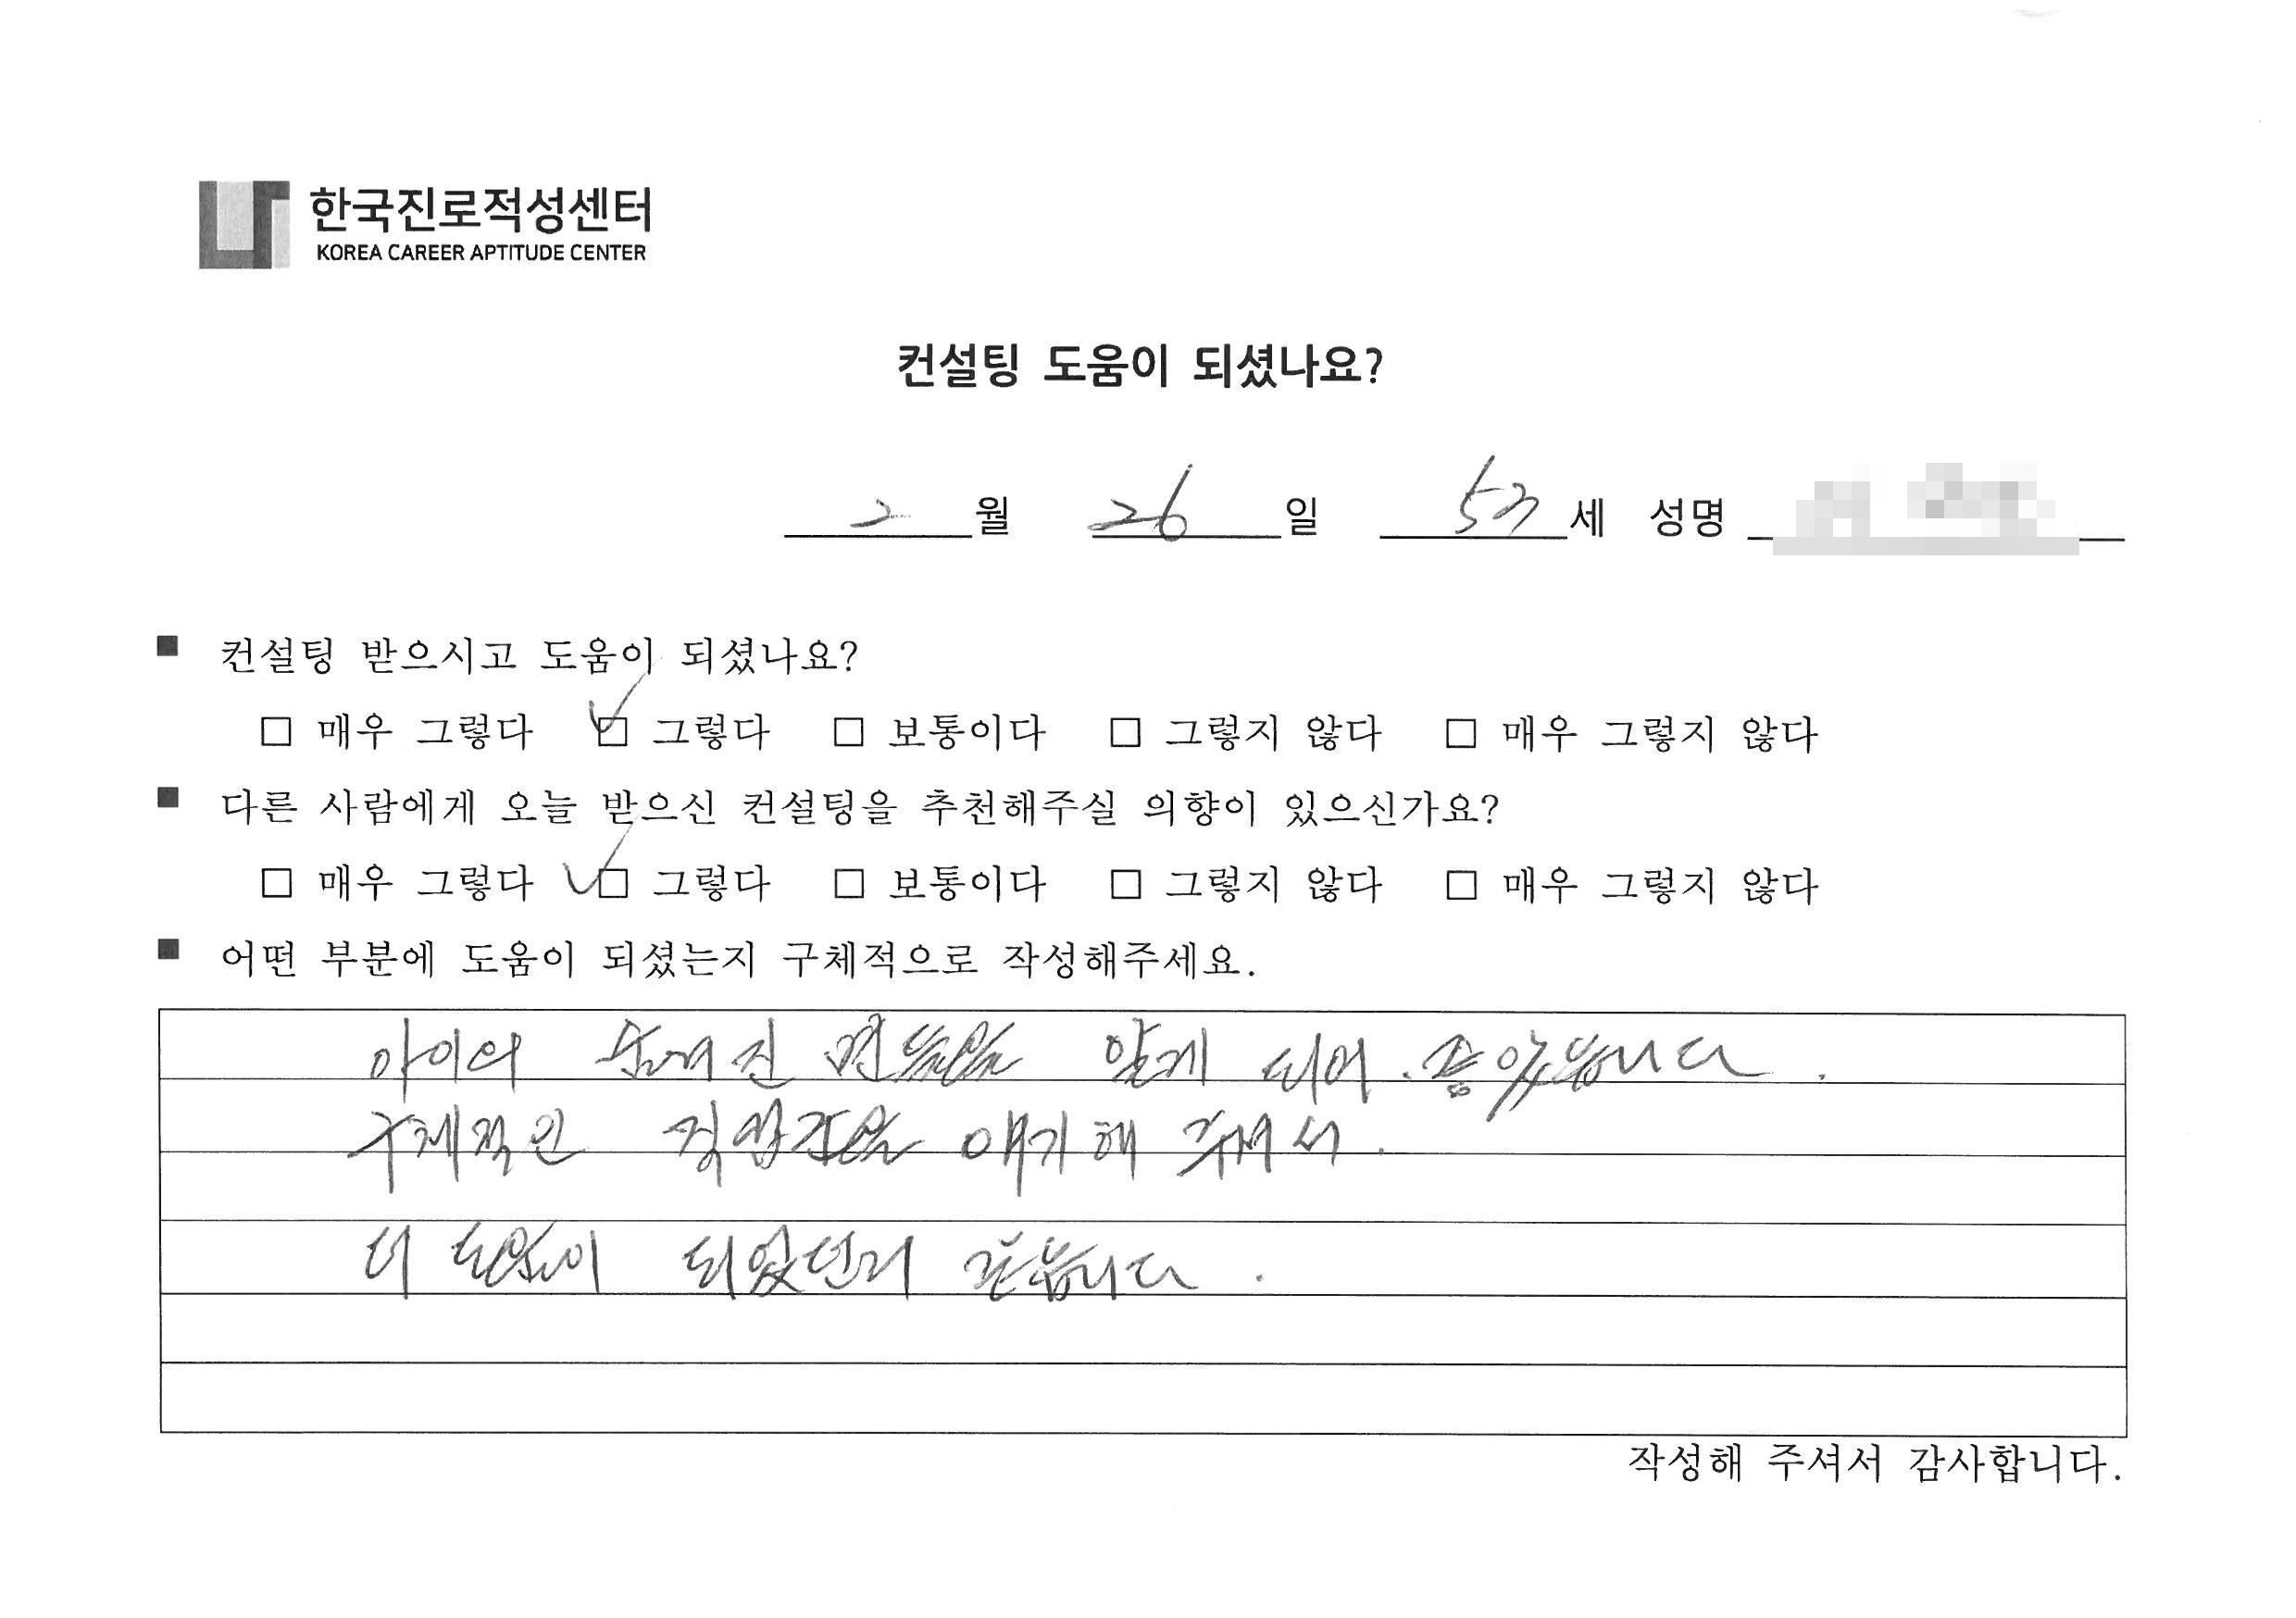 한국진로적성센터
KOREA CAREER APTITUDE CENTER
컨설팅 도움이 되셨나요?
2 월 26 일 53 세 성명
■ 컨설팅 받으시고 도움이 되셨나요?
□ 매우 그렇다 ☑ 그렇다 □ 보통이다 □ 그렇지 않다 □ 매우 그렇지 않다
■ 다른 사람에게 오늘 받으신 컨설팅을 추천해주실 의향이 있으신가요?
□ 매우 그렇다 ☑ 그렇다 □ 보통이다 □ 그렇지 않다 □ 매우 그렇지 않다
■ 어떤 부분에 도움이 되셨는지 구체적으로 작성해주세요.
아이의 숨겨진 면들을 알게 되어. 좋았습니다.
구체적인 직업군을 얘기해 주셔서.
더 도움이 되었던거 같습니다.
작성해 주셔서 감사합니다.